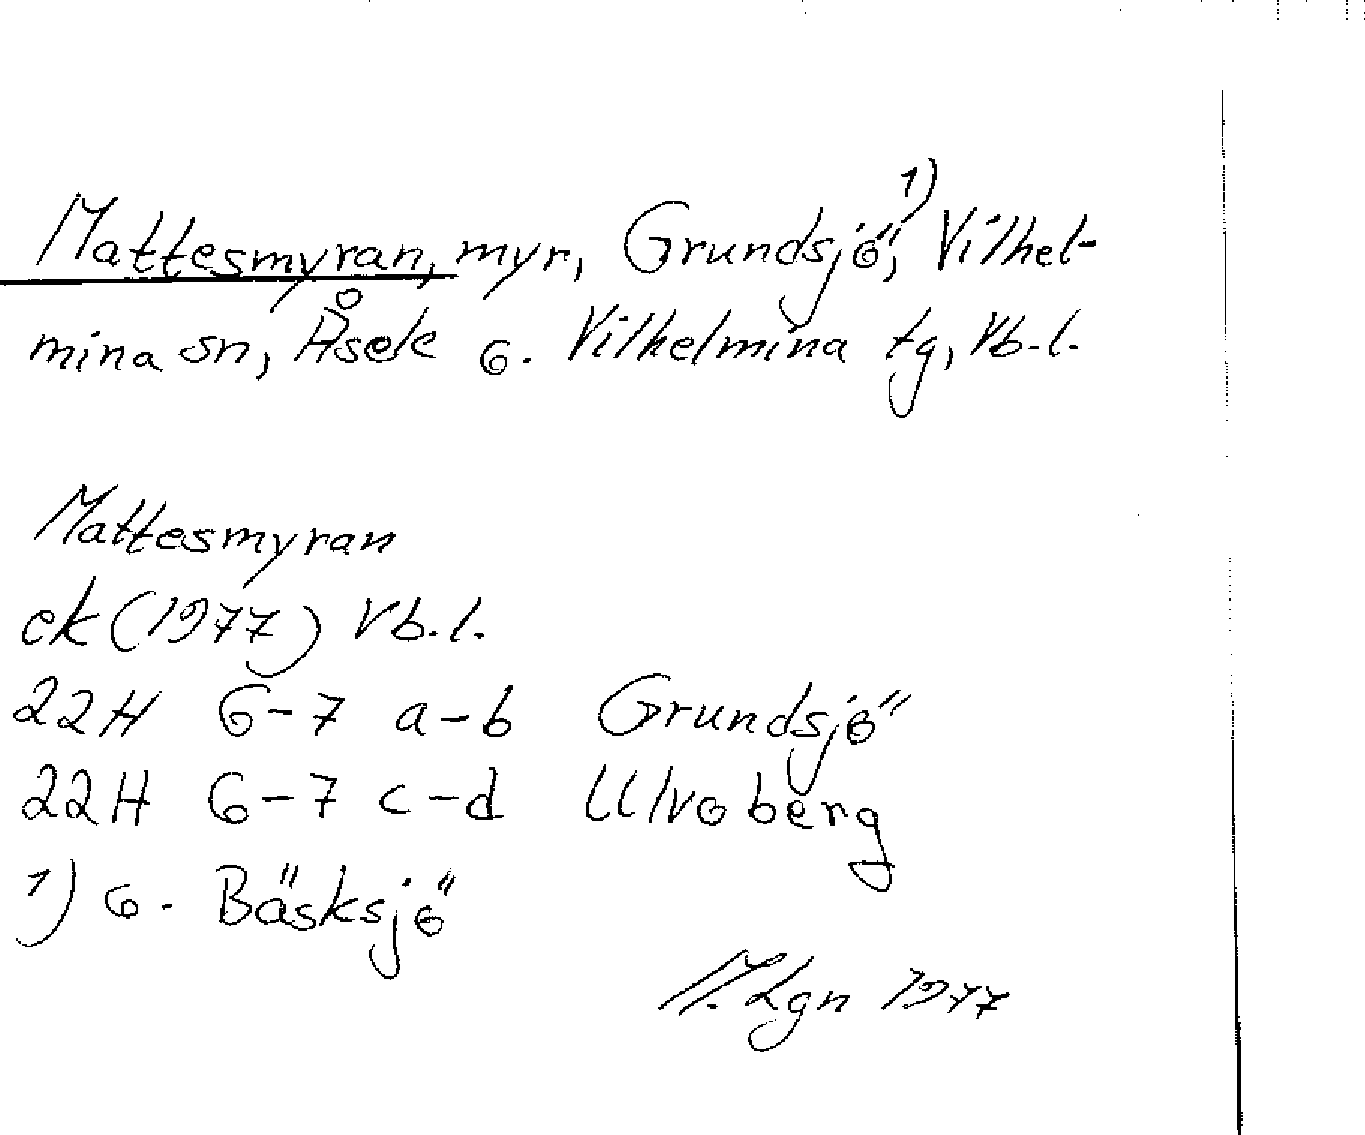 Mattesmyran, myr, Grundsjö¹⁾, Vilhel-
mina sn, Åsele o. Vilhelmina tg, Vb.l.
Mattesmyran
ek (1977) Vb.l.
22H 6-7 a-b Grundsjö
22H 6-7 c-d Ulvoberg
1) o. Bäsksjö
M. Lgn 1977